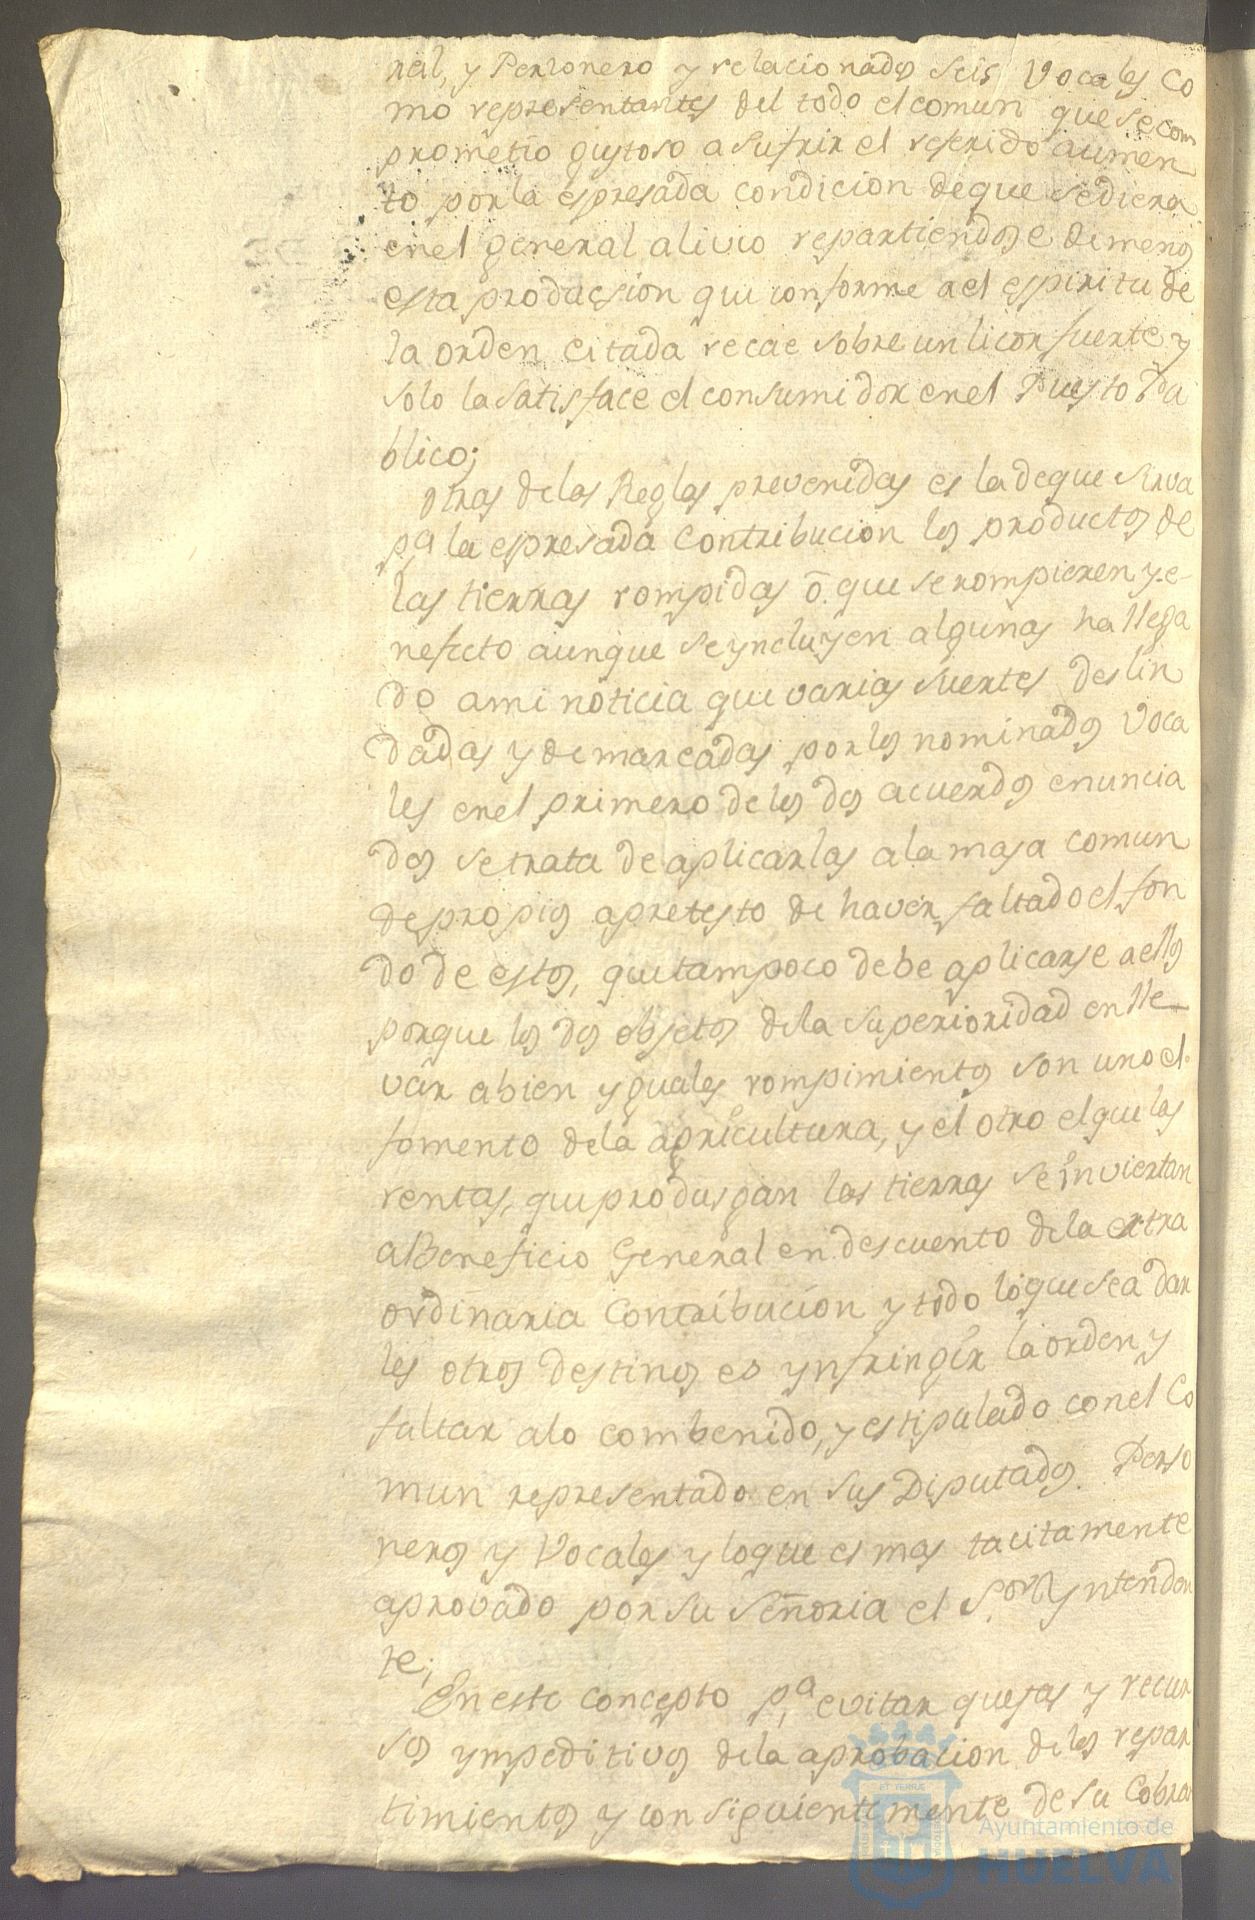 ral, y Personero y relacionados seis Vocales co
mo representantes del todo el comun que se com
prometio gustoso a sufrir el referido aumen
to por la espresada condicion de que se diera
en el general alivio repartiendose de menos
esta producsion qui conforme a el espiritu de
la orden citada recae sobre un licor fuerte y
solo la satisface el consumidor en el Puesto Pu
blico;
Otras de las Reglas prevenidas es la de que sirva
pa. la espresada Contribucion los productos de
las tierras rompidas ō que se rompieren y e
nefecto aunque se yncluyen algunas ha llega
do ami noticia que varias suertes deslin
dadas y demarcadas por los nominados Voca
les en el primero de los dos acuerdos enuncia
dos se trata de aplicarlas a la masa comun
de propios apretesto de haver faltado el fon
do de estos, qui tampoco debe aplicarse a ellos
porque los dos objetos de la superioridad en lle
var abien yguales rompimientos son uno el
fomento de la agricultura, y el otro el que las
rentas, qui produsgan las tierras se inviertan
a Beneficio General en descuento de la extra
ordinaria Contribucion y todo lo que sea dar
les otros destinos es ynfringir la orden y
faltar alo combenido, y estipulado con el Co
mun representado en sus Diputados. Perso
neros y Vocales y lo que es mas tacitamente
aprovado por su Señoria el Sor. Yntenden
te;
En este concepto pa. evitar quejas y recur
sos ympeditivos de la aprobacion de los repar
timientos y consiguientemente de su Cobran
Ayuntamiento de
HUELVA